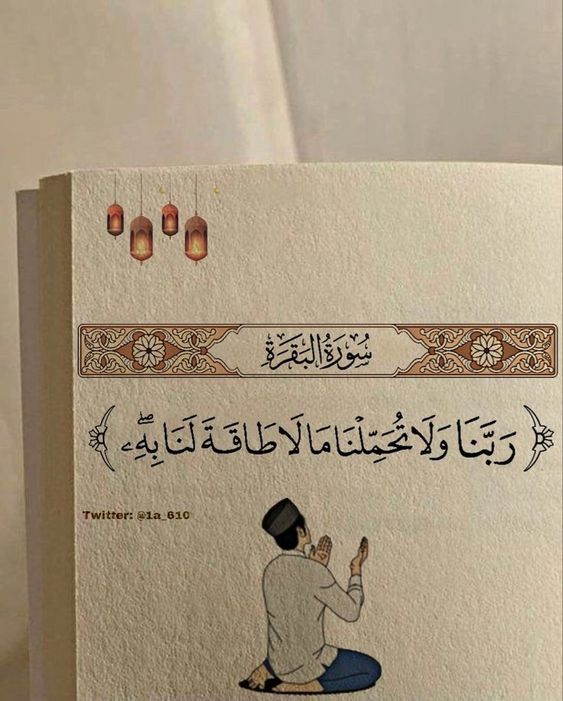 سُورَةُ البَقَرَةِ
﴿ رَبَّنَا وَلَا تُحَمِّلْنَا مَا لَا طَاقَةَ لَنَا بِهِۦۖ ﴾
Twitter: @1a_610